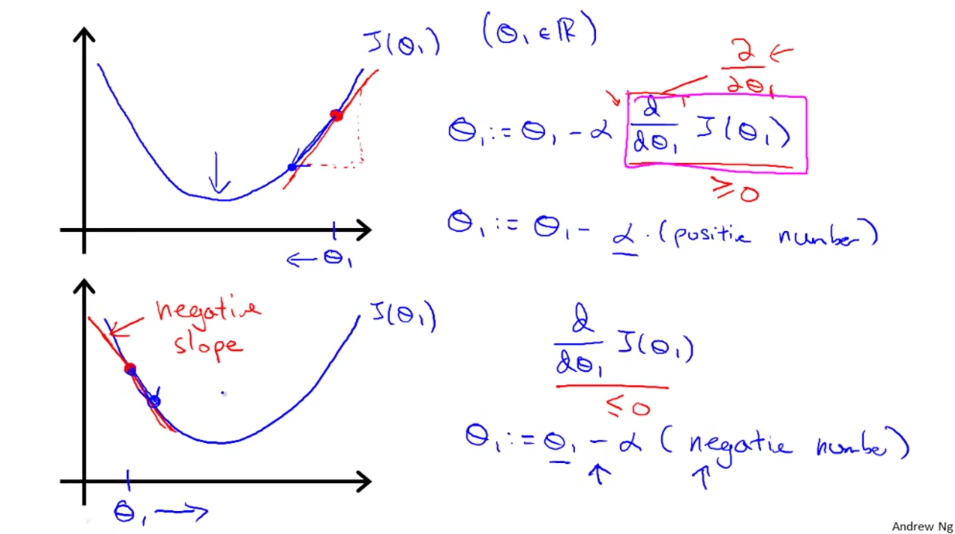 J(Θ₁) (Θ₁ ∈ ℝ)
∂/∂Θ₁ ←
Θ₁ := Θ₁ - α d/dΘ₁ J(Θ₁)
≥ 0
Θ₁ := Θ₁ - α · (positie number)
← Θ₁
negative
slope
J(Θ₁)
d/dΘ₁ J(Θ₁)
≤ 0
Θ₁ := Θ₁ - α (negatie number)
Θ₁ →
Andrew Ng